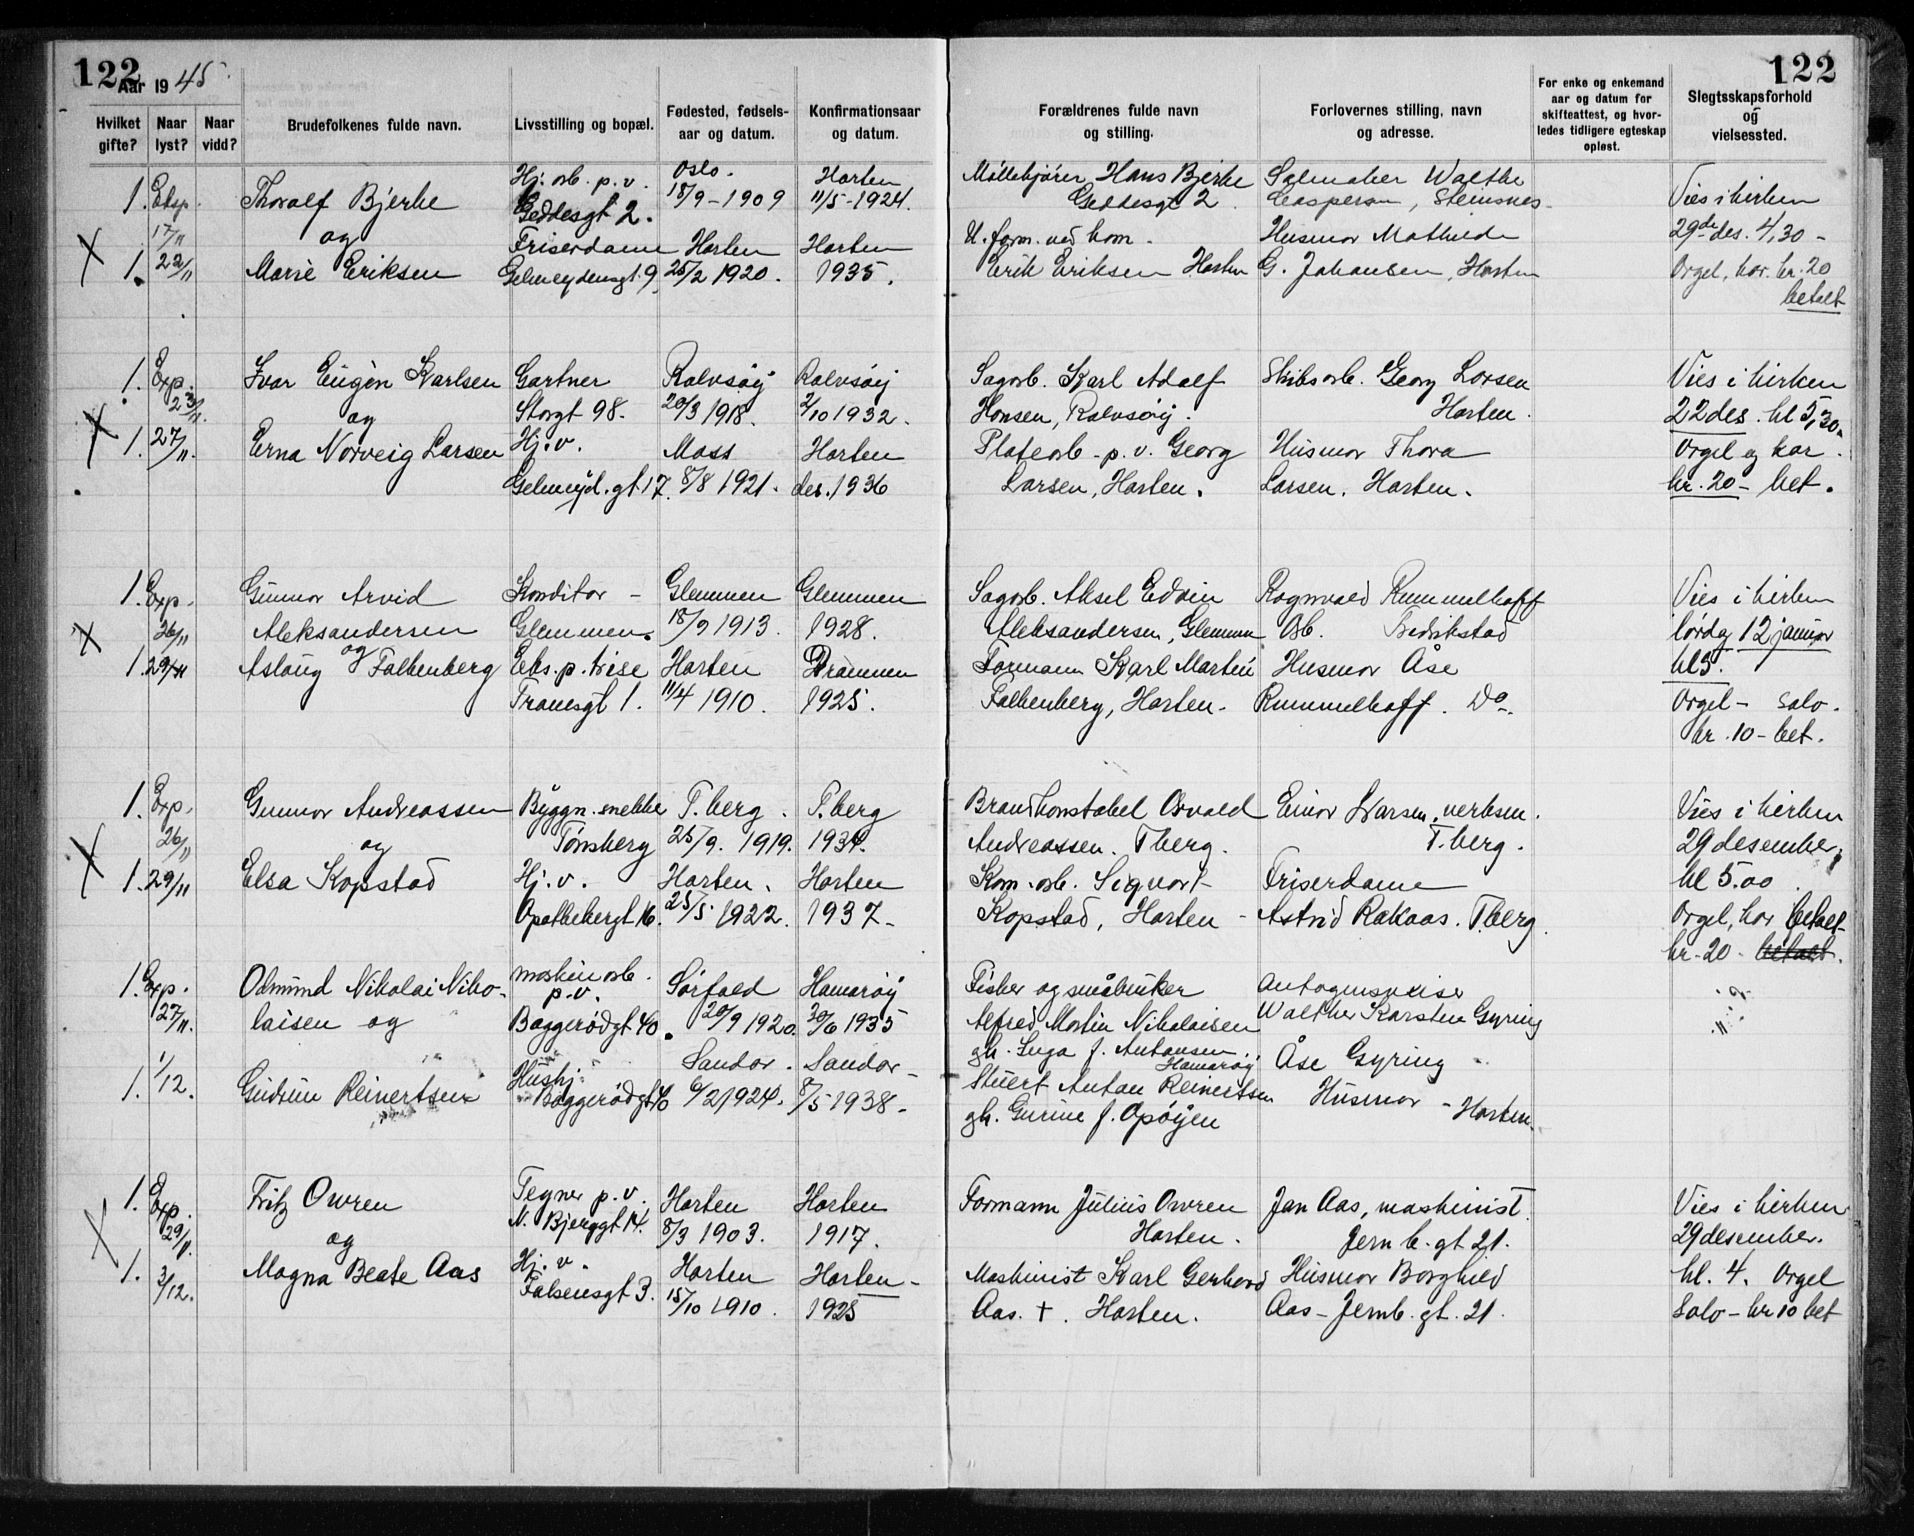 122
Aar 1945.
122
Hvilket gifte?
Naar lyst?
Naar vidd?
Brudefolkenes fulde navn.
Livsstilling og bopæl.
Fødested, fødsels-
aar og datum.
Konfirmationsaar
og datum.
Forældrenes fulde navn
og stilling.
Forlovernes stilling, navn
og adresse.
For enke og enkemand
aar og datum for
skifteattest, og hvor-
ledes tidligere egteskap
opløst.
Slegtsskapsforhold
og
vielsessted.
1. Eksp. 17/11
Thoralf Bjerke
og
Hj. arb. p.v.
Geddesgt 2.
Oslo.
18/9-1909
Horten
11/5-1924.
Hans Bjerke
Geddesgt 2.
Salmaker Walthe
Casperson, Steinsnes
Vies i kirken
29de des. 4,30 -
X 1. 22/11
Marie Eriksen
Friserdame
Gelmeydensgt. 9.
Horten
25/2 1920.
Horten
1935.
U. form. ved kom.
Erik Eriksen Horten
Husmor Mathilde
G. Johansen, Horten
Orgel, kor. kr. 20
betalt
1. Exp. 23/11.
Ivar Eugèn Karlsen
og
Gartner
Storgt 98.
Rolvsøy
20/3 1918.
Rolvsøy
2/10 1932.
Sagarb. Karl Adolf
Hansen, Rolvsøy.
Skibsarb. Georg Larsen
Horten.
Vies i kirken
22 des. kl 5,30.
X 1. 27/11.
Erna Norveig Larsen
Hj. v.
Gelmeyd. gt 17.
Moss
8/8 1921.
Horten
des. 1936
Platearb. p.v. Georg
Larsen, Horten.
Husmor Thora
Larsen. Horten.
Orgel og kor.
kr. 20 - bet.
1. Exp. 26/11
Gunnar Arvid
Aleksandersen
og
Konditor -
Glemmen.
Glemmen
18/9 1913.
Glemmen
1928.
Sagarb. Aksel Edvin
Aleksandersen, Glemmen
Ragnvald Rummelhoff
Arb. Fredrikstad
Vies i kirken
lørdag 12 januar
kl 5.
X 1. 29/11
Aslaug Falkenberg
Eks. p. trise
Tranesgt 1.
Horten
11/4 1910.
Drammen
1925.
Formann Karl Martin
Falkenberg, Horten.
Husmor Åse
Rummelhoff. Do.
Orgel - Solo.
kr. 10 - bet.
1. Exp. 26/11
Gunnar Andreassen
og
Byggn. snekker
Tønsberg
T.berg.
25/9. 1919.
T.berg
1934.
Brandkonstabel Osvald
Andreassen. Tberg.
Einar Larsen, verksm.
T.berg.
Vies i kirken
29 desember,
kl 5.00.
X 1. 29/11
Elsa Kopstad
Hj. v.
Apothekergt 16.
Horten.
25/5 1922.
Horten
1937-
Kom. arb. Sigvart
Kopstad, Horten -
Friserdame
Astrid Rakaas. T.berg.
Orgel, kor betalt
kr. 20 - betalt.
1. Exp. 27/11.
Odmund Nikolai Niko-
laisen og
maskinarb.
p.v.
Baggerødgt 40.
Sørfold
20/9 1920.
Hamarøy
30/6 1935
Fisker og småbruker
Alfred Martin Nikolaisen
gh. Inga f. Antonsen.
Hamarøy.
Walther Karsten Gyring
1. 1/12.
Gudrun Reinertsen
Hushj.
Baggerødgt 40
Sandar.
6/2 1924.
Sandar-
8/5-1938.
Stuert Anton Reinertsen
gh. Gurine f. Opøyen
Åse Gyring
Husmor - Horten.
1. Exp. 29/11.
Fritz Owren
og
Tegner p.v.
N. Bjerggt 14.
Horten
8/3 1903.
Horten
1917.
Formann Julius Owren
Horten.
Jan Aas, maskinist
Jernb. gt 21.
Vies i kirken
29 desember.
X 1. 3/12.
Magna Beate Aas
Hj. v.
Falsensgt 3.
Horten
15/10 1910.
Horten-
1925
Maskinist Karl Gerhard
Aas. +. Horten.
Husmor Borghild
Aas - Jernb. gt. 21.
kl. 4. Orgel
Solo - kr 10 bet